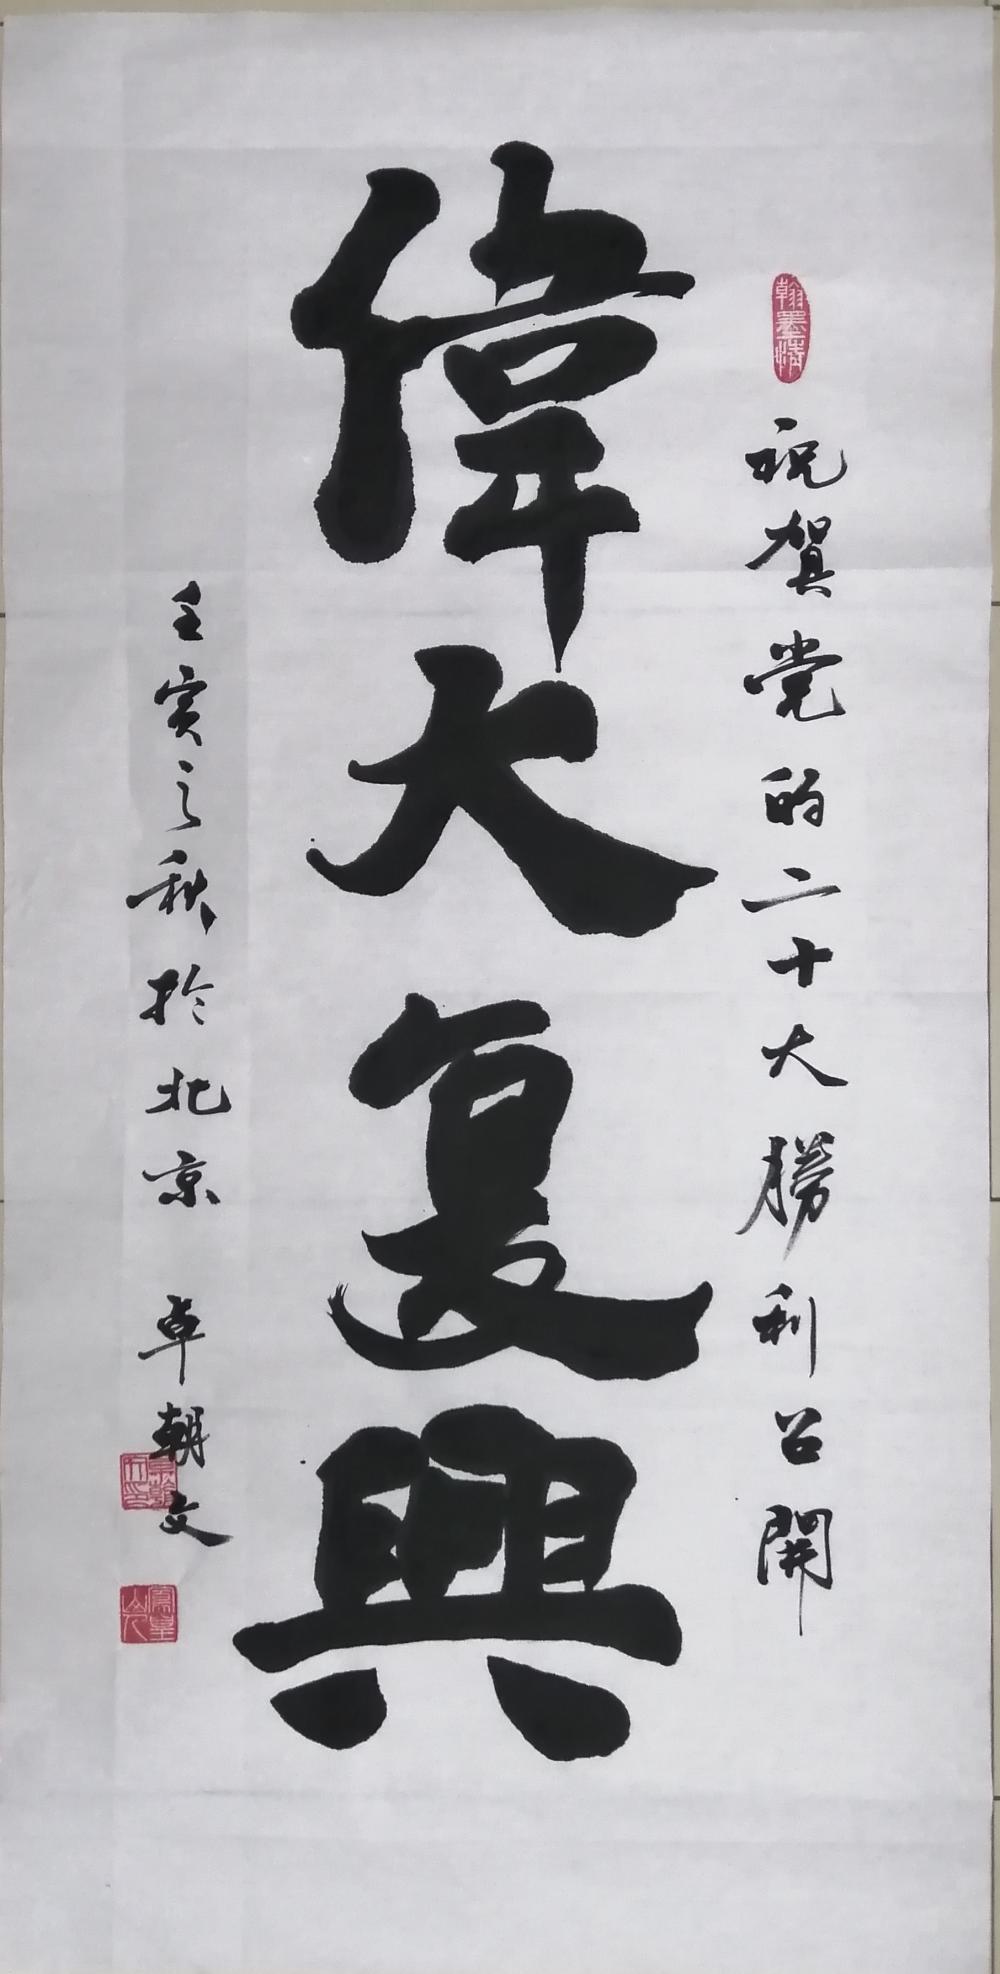 翰墨情
祝贺党的二十大勝利召開
偉大复興
壬寅之秋於北京 卓朝文